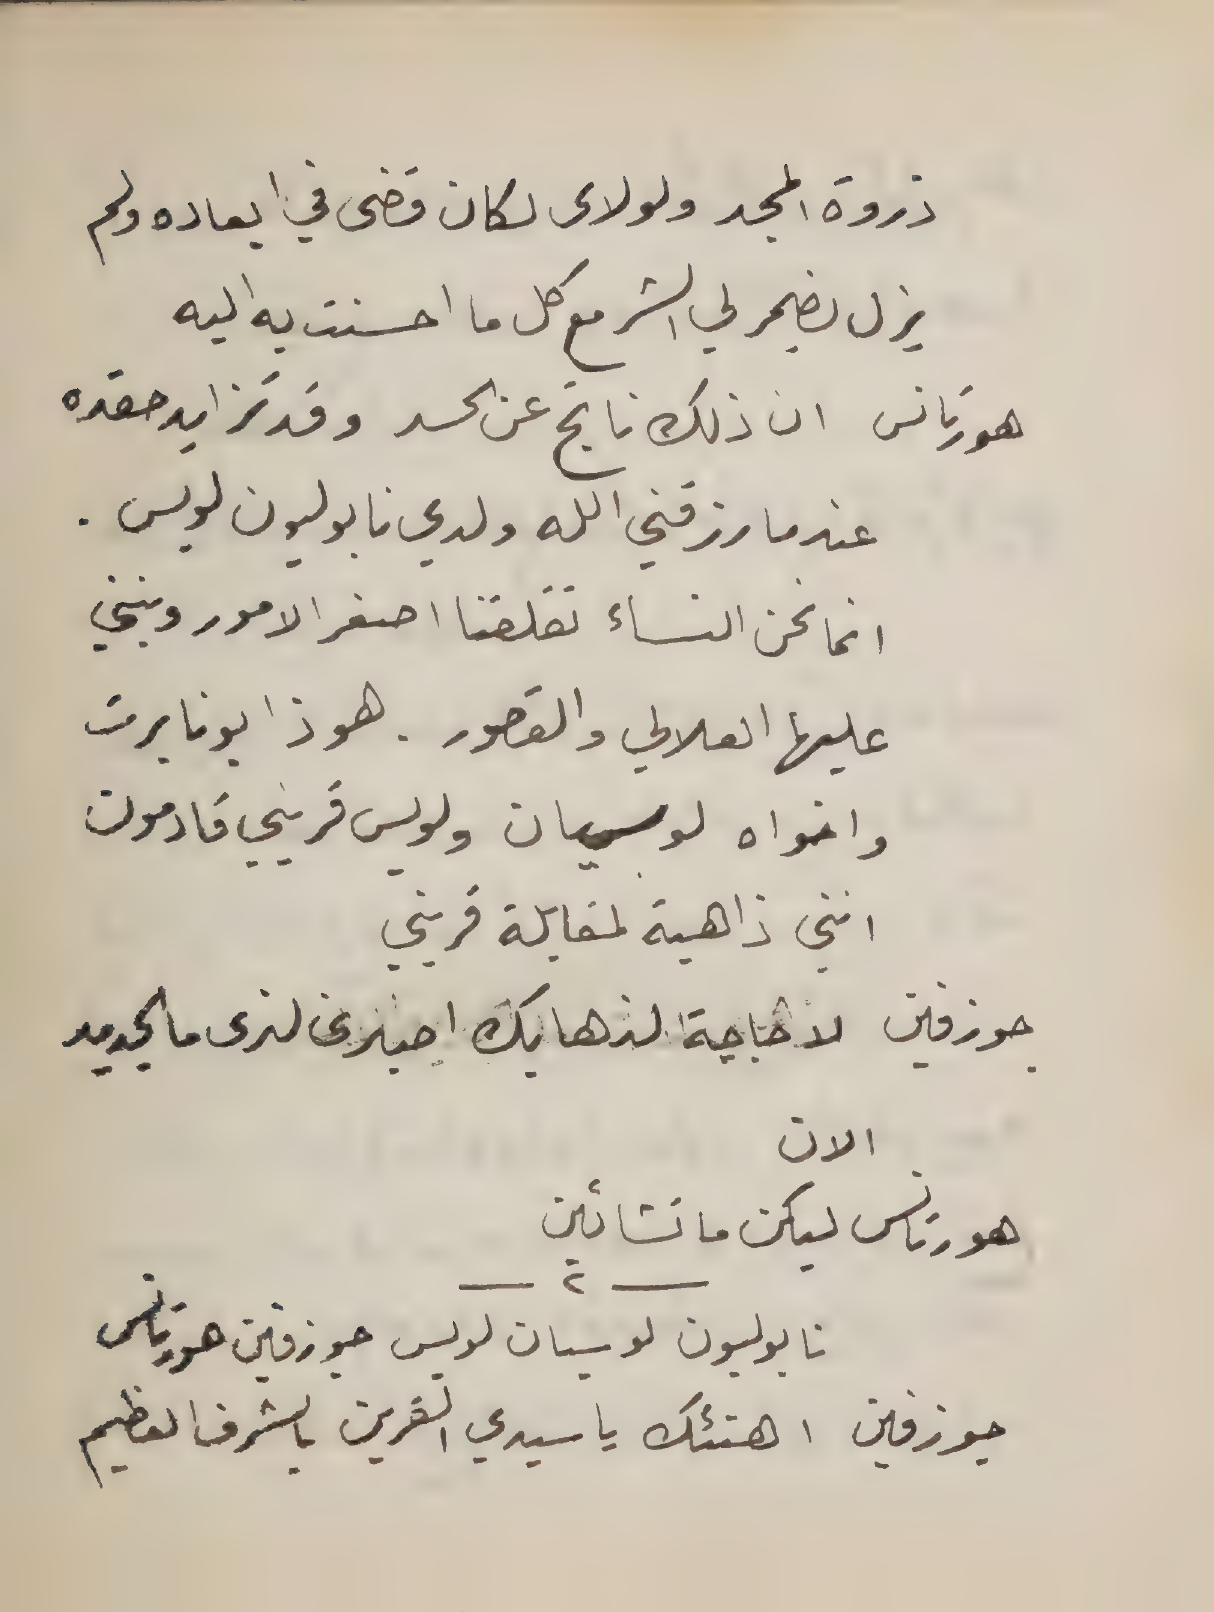 ذروة المجد ولولاى لكان قضى في ابعاده ولم
يزل يضمر لي الشر مع كل ما احسنت به اليه
هورتانس ان ذلك ناتج عن الحسد وقد تزايد حقده
عندما رزقني الله ولدي نابوليون لويس .
انما نحن النساء تقلقنا اصغر الامور ونبني
عليها العلالي والقصور . هوذا بونابرت
واخواه لوسيان ولويس قريني قادمون
انني ذاهبة لمقابلة قريني
جوزفين لا حاجة لذهابك اصبري لنرى ما الجديد
الان
هورتانس ليكن ما تشائين
— ٢ —
نابوليون لوسيان لويس جوزفين هورتانس
جوزفين اهنئك يا سيدي القرين بالشرف العظيم